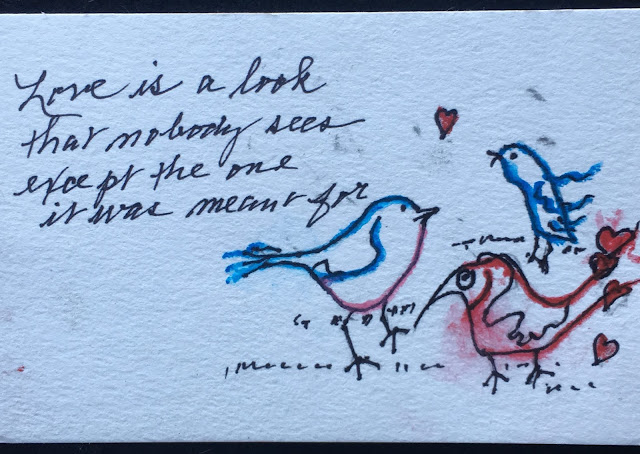 Love is a look
that nobody sees
except the one
it was meant for